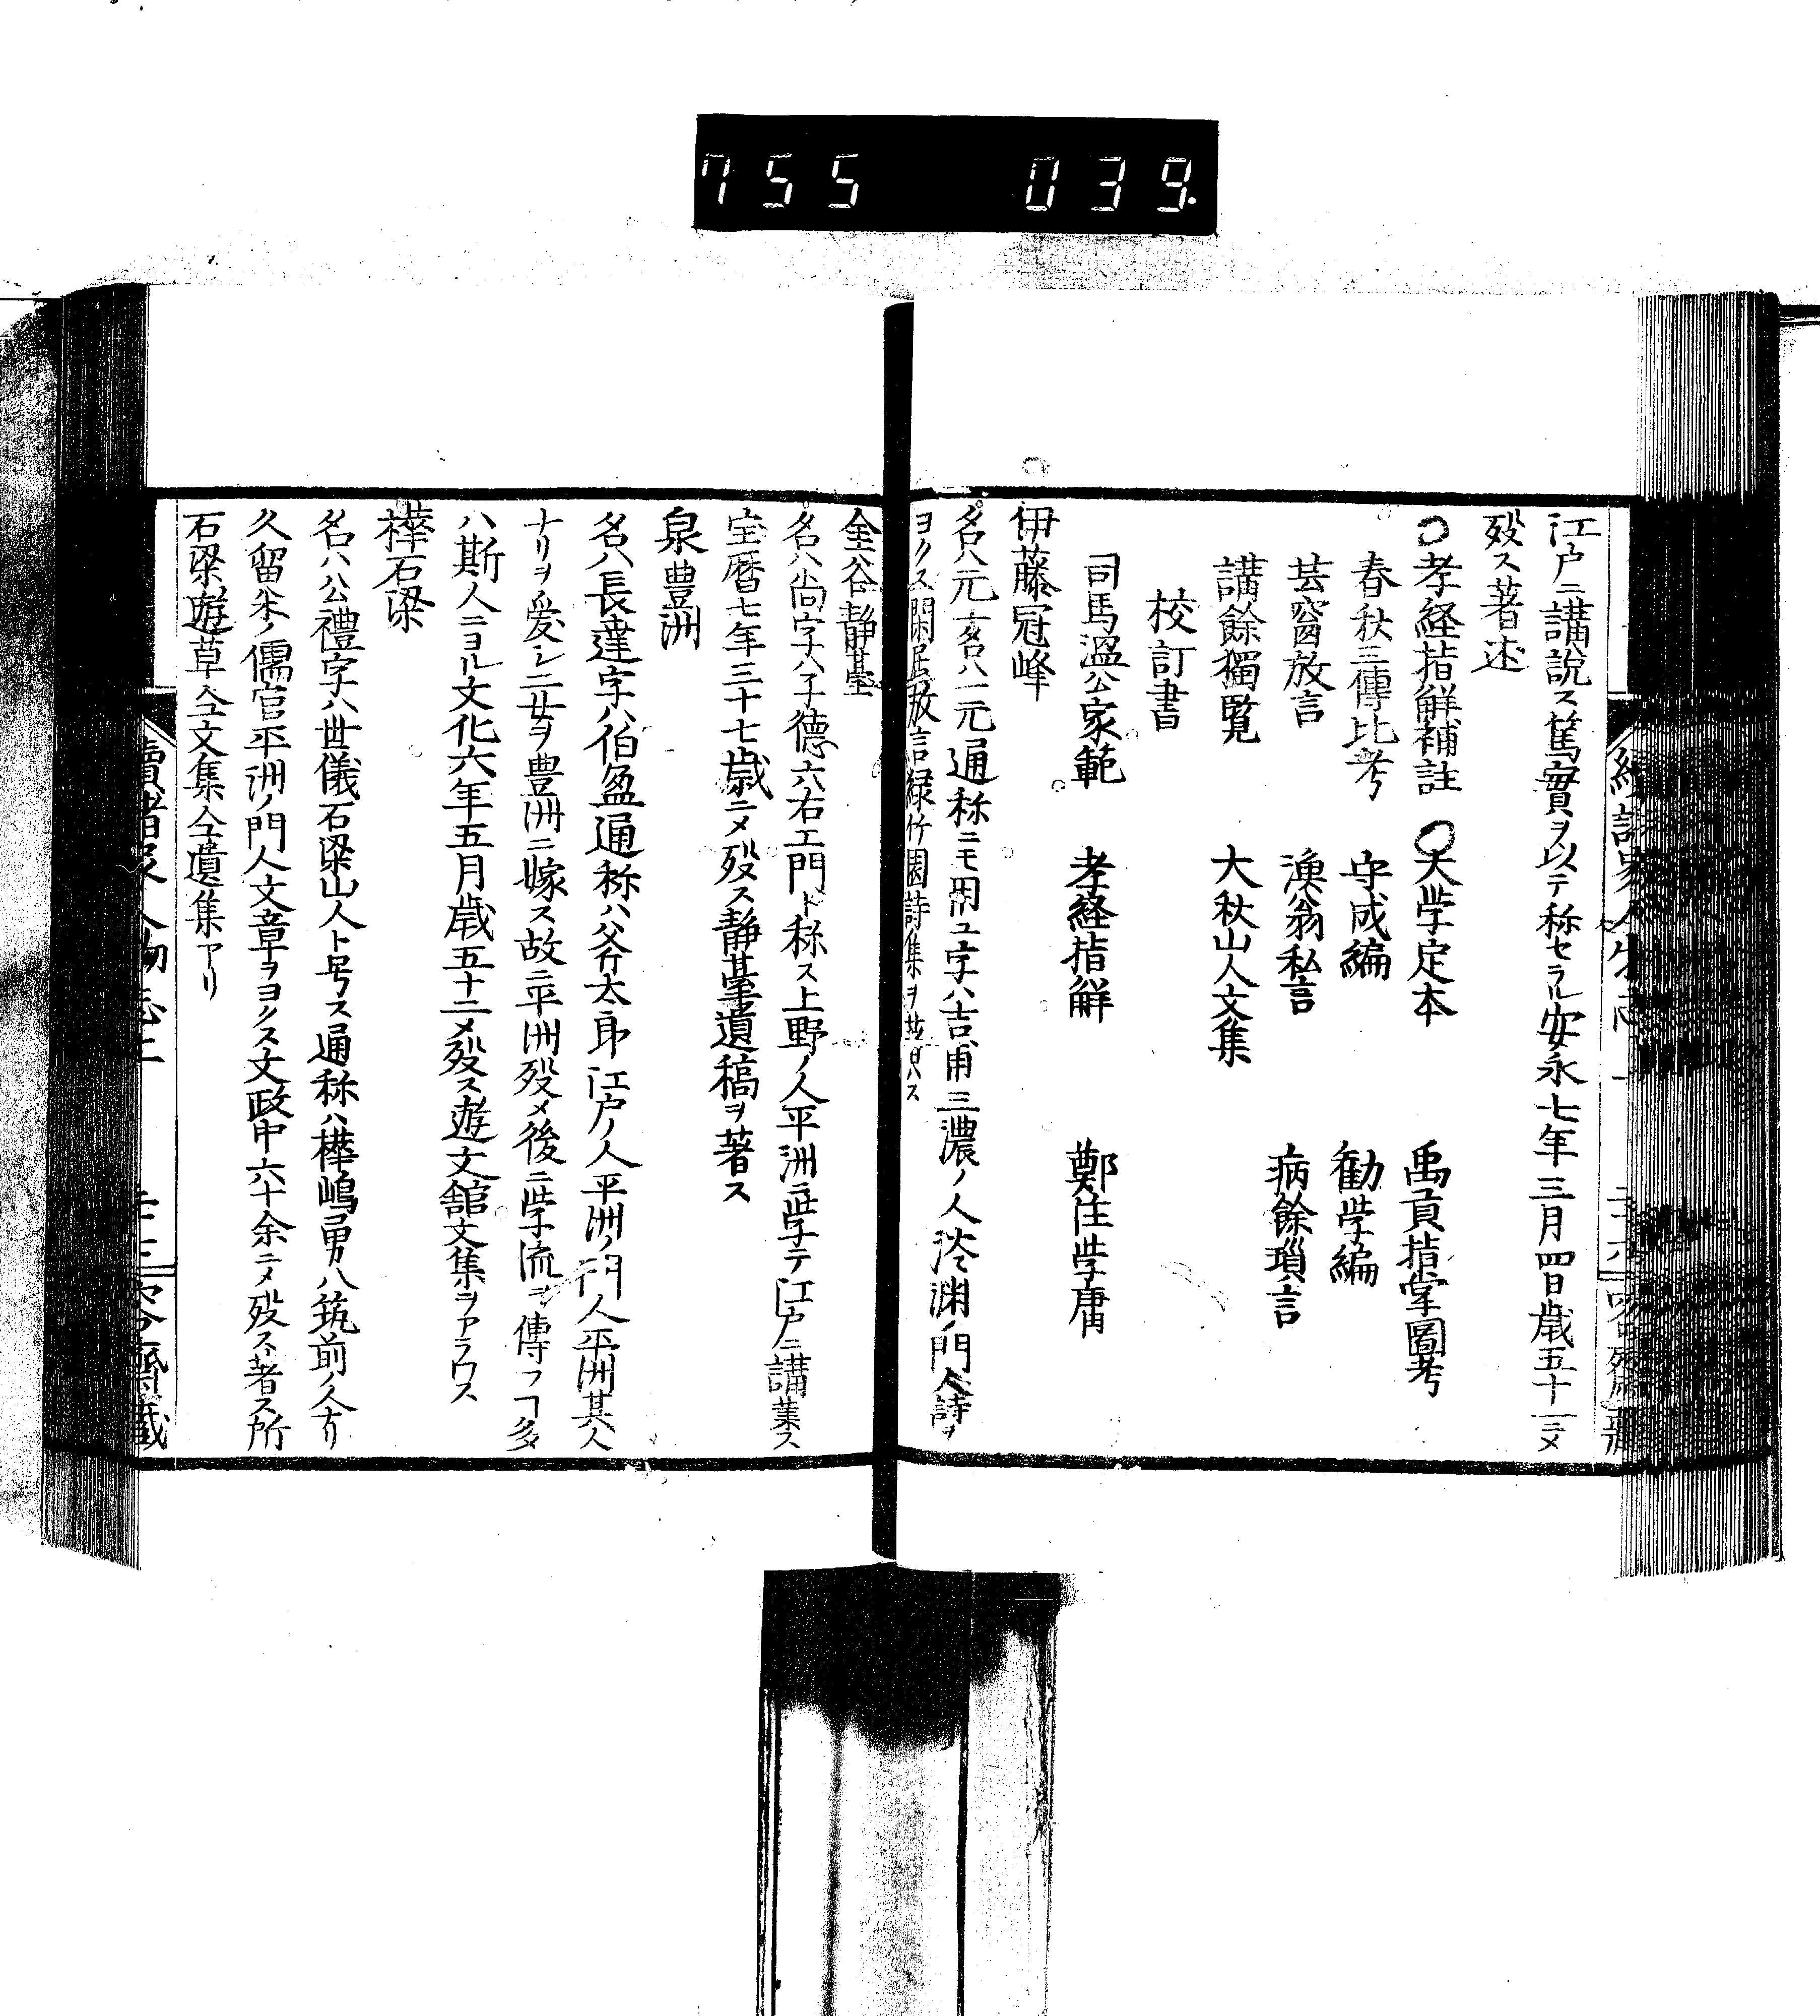 755 039.
江戸ニ講説ス篤實ヲ以テ称セラル安永七年三月四日歳五十三ニメ
歿ス著述
○孝経指觧補註 ○大学定本 禹貢指掌圖考
春秋三傳比考 守成編 勧学編
芸窗放言 漁翁私言 病餘瑣言
講餘獨覧 大秋山人文集
校訂書
司馬温公家範 孝経指觧 鄭注学庸
伊藤冠峰
名ハ元 名ハ一元通称ニモ用ユ字ハ吉甫三濃ノ人 渊ノ門人詩ヲ
ヨクス閑居放言緑竹園詩集ヲ著ハス
金谷静䑓
名ハ尚字ハ子德六右エ門ト称ス上野ノ人平洲ニ学テ江戸ニ講業ス
宝暦七年三十七歳ニメ歿ス静䑓遺稿ヲ著ス
泉豊洲
名ハ長達字ハ伯盈通称ハ斧太郎江戸ノ人平洲ノ門人平洲其人
ナリヲ愛シ二女ヲ豊洲ニ嫁ス故ニ平洲歿メ後ニ学流ヲ傳フコ多
ハ斯人ニヨル文化六年五月歳五十二メ歿ス遊文舘文集ヲアラワス
樺石梁
名ハ公禮字ハ世儀石梁山人ト号ス通称ハ樺嶋勇八筑前ノ人ナリ
久留米ノ儒官平洲ノ門人文章ヲヨクス文政中六十余ニメ歿ス著ス所
石梁遊草仝文集仝遺集アリ